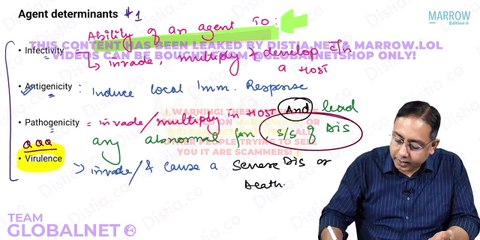 Agent determinants #1
MARROW
Edition 8
Ability of an agent To:
THIS CONTENT HAS BEEN LEAKED BY DISTIA.NET & MARROW.LOL
VIDEOS CAN BE BOUGHT FROM @GLOBALNETSHOP ONLY!
• Infectivity → invade / multiply & develop in
a Host
• Antigenicity: Induce Local Imm. Response
! WARNING! THERE
• Pathogenicity = invade/multiply in HOST And lead
any abnormal fxn s/s of DIS
PEOPLE TRYING TO SE
YOU IT ARE SCAMMERS!
QQQ
• Virulence → invade/& cause a severe DIS or
Death.
TEAM
GLOBALNET